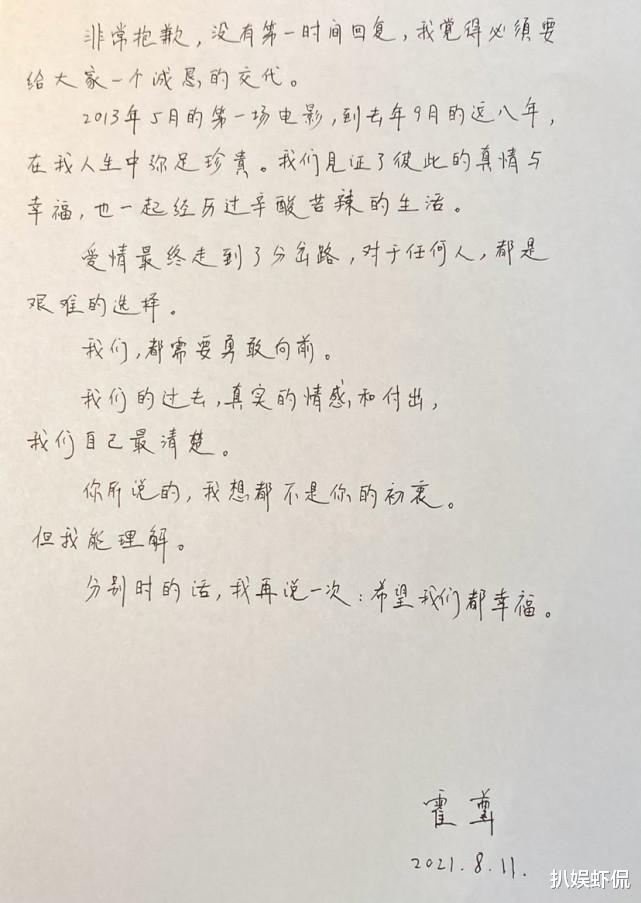 非常抱歉，没有第一时间回复，我觉得必须要
给大家一个诚恳的交代。
2013年5月的第一场电影，到去年9月的这八年，
在我人生中弥足珍贵。我们见证了彼此的真情与
幸福，也一起经历过辛酸苦辣的生活。
爱情最终走到了分岔路，对于任何人，都是
艰难的选择。
我们，都需要勇敢向前。
我们的过去，真实的情感和付出，
我们自己最清楚。
你所说的，我想都不是你的初衷。
但我能理解。
分别时的话，我再说一次：希望我们都幸福。
霍尊
2021.8.11.
扒娱虾侃